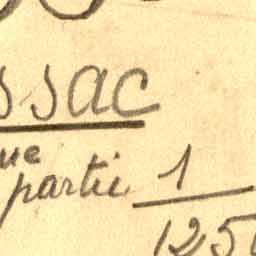 ssac
ue
partie 1
125